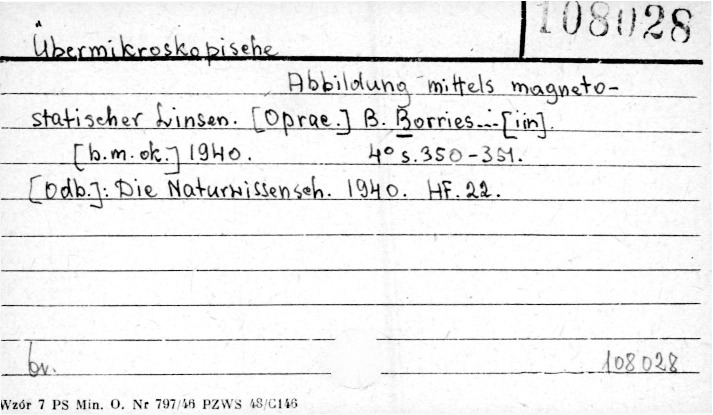 108028
Übermikroskopische
Abbildung mittels magneto-
statischer Linsen. [Oprac.] B. Borries...[iin].
[b.m.ok.] 1940. 4° s. 350-351.
[Odb.]: Die Naturwissensch. 1940. Hf. 22.
br. 108028
Wzór 7 PS Min. O. Nr 797/46 PZWS 48/C146